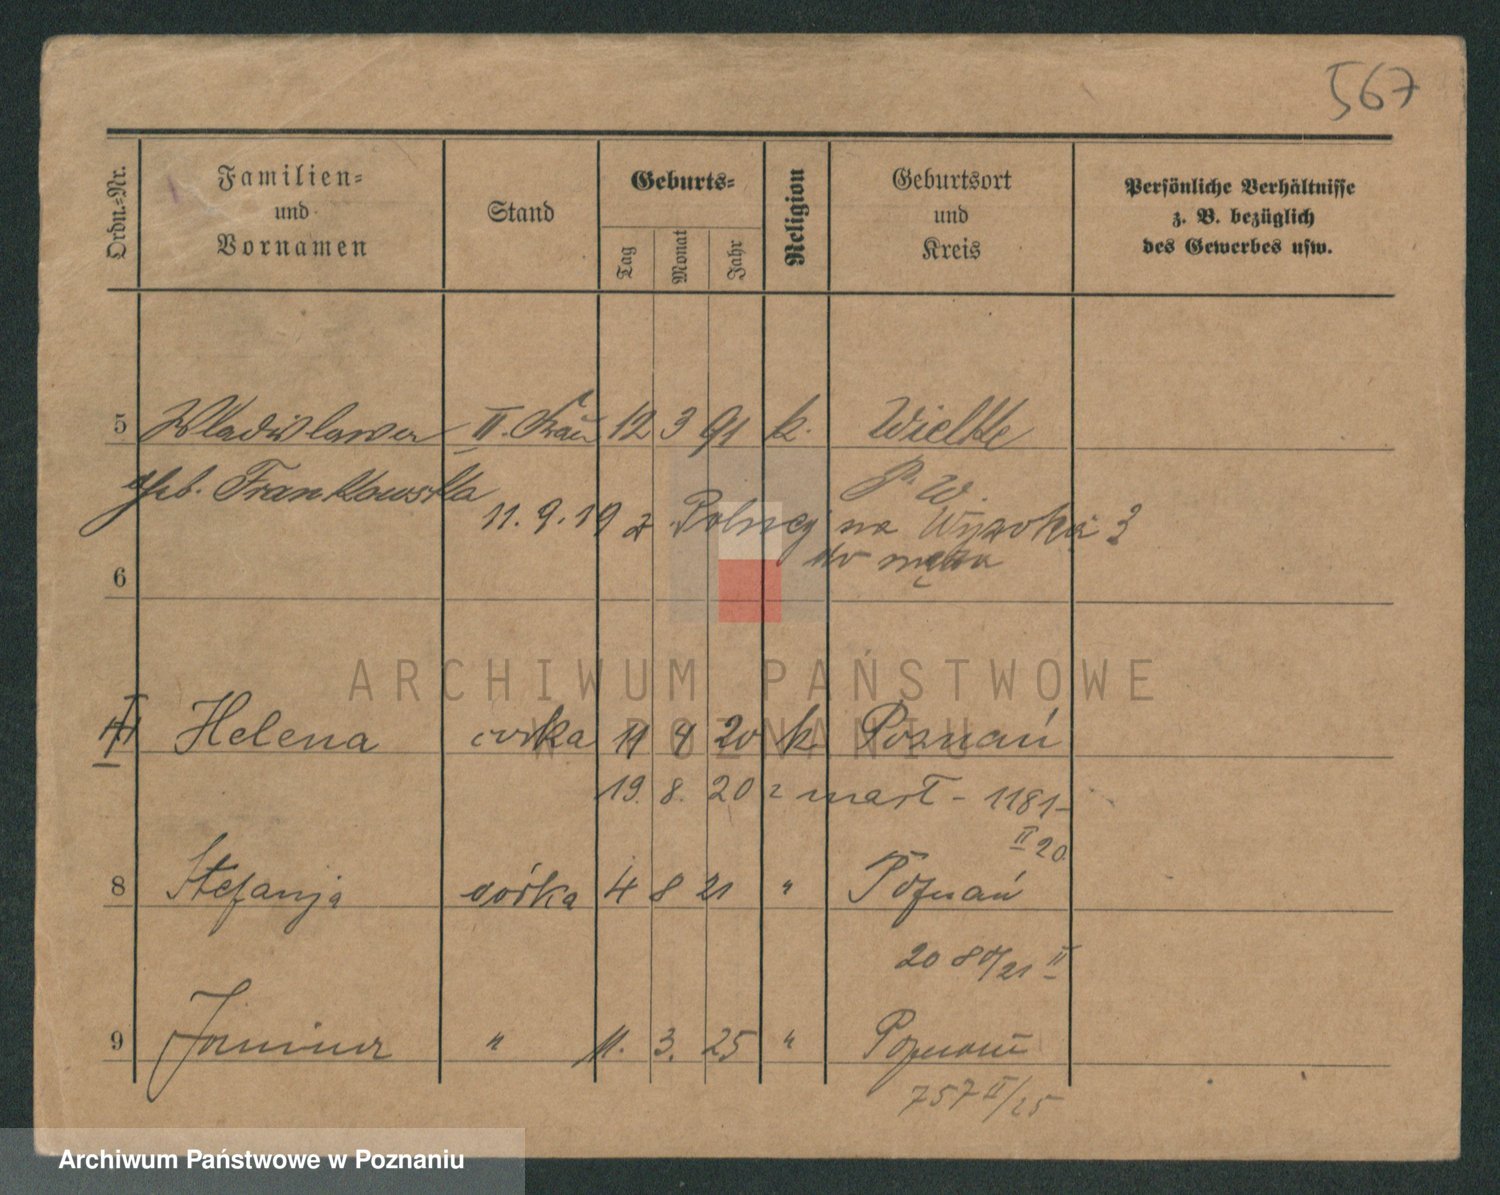 567
Ordn.-Nr.
Familien-
und
Vornamen
Stand
Geburts-
Tag
Monat
Jahr
Religion
Geburtsort
und
Kreis
Persönliche Verhältnisse
z. B. bezüglich
des Gewerbes usw.
5 Wladislawa II. Frau 12 3 91 k. Wielkie
geb. Frankowska P. W.
11.9.19 z Polnej na Wysoka 3
6 do męża
ARCHIWUM PAŃSTWOWE
W POZNANIU
Helena córka 11 8 20 k. Poznań
19. 8. 20 mart - 1181-
II 20
8 Stefanja córka 4 8 21 " Poznań
20 8 21 II
9 Janina " 11. 3. 25 " Poznań
757 II/25
Archiwum Państwowe w Poznaniu